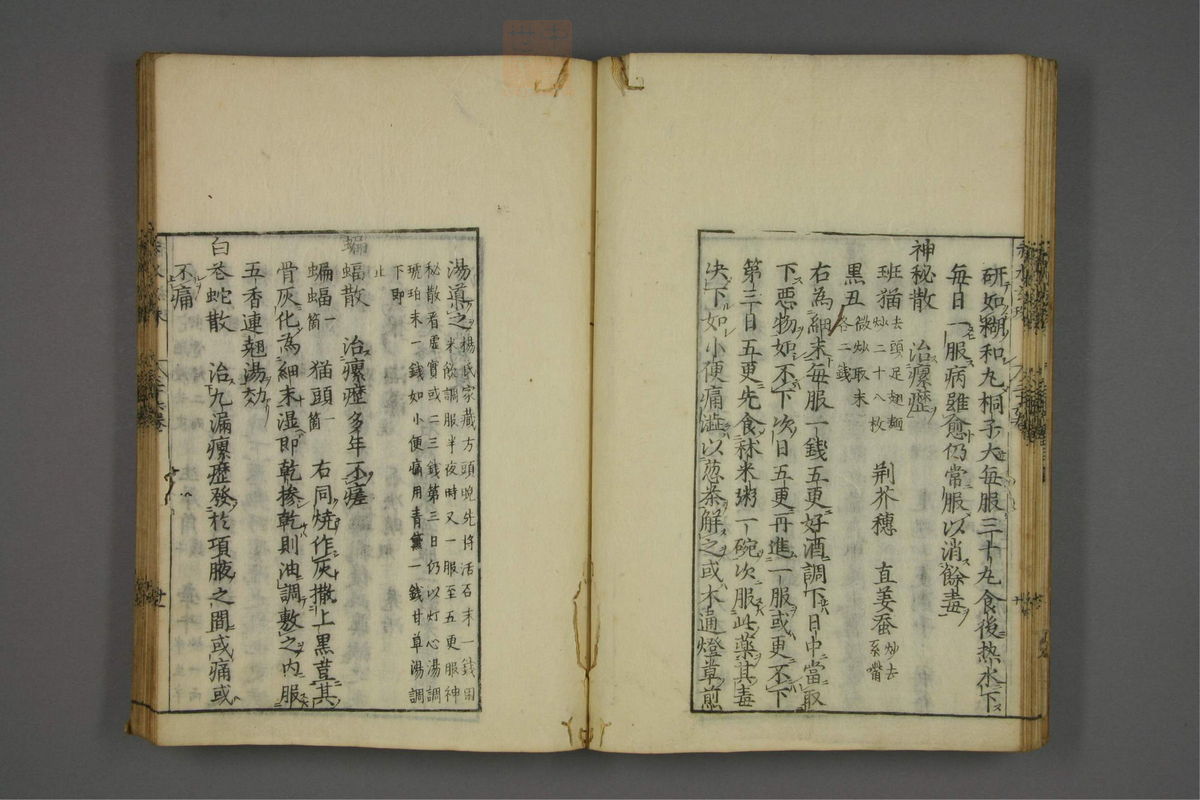 研如糊和丸桐子大每服三十丸食後热水下
每日一服病雖愈仍常服以消餘毒
神秘散 治瘰癧
班猫去頭足翅麺炒二十八枚 荆芥穗 直姜蚕炒去系嘴
黑丑微炒取末各二錢
右為細末每服一錢五更好酒調下日中當取
下惡物如不下次日五更再進一服或更不下
第三日五更先食秫米粥一碗次服此藥其毒
决下如小便痛澁以葱茶解之或木通燈草煎
湯導之楊氏家藏方頭晚先将活石末一錢用米飲調服半夜時又一服至五更服神
秘散看虚實或二三錢第三日仍以灯心湯調
琥珀末一錢如小便痛用青黛一錢甘草湯調
下即止
蝙蝠散 治瘰癧多年不瘥
蝙蝠一箇 猫頭一箇 右同燒作灰撒上黑荳其
骨灰化為細末湿即乾掺乾則油調敷之内服
五香連翹湯効
白花蛇散 治九漏瘰癧發於項腋之間或痛或
不痛